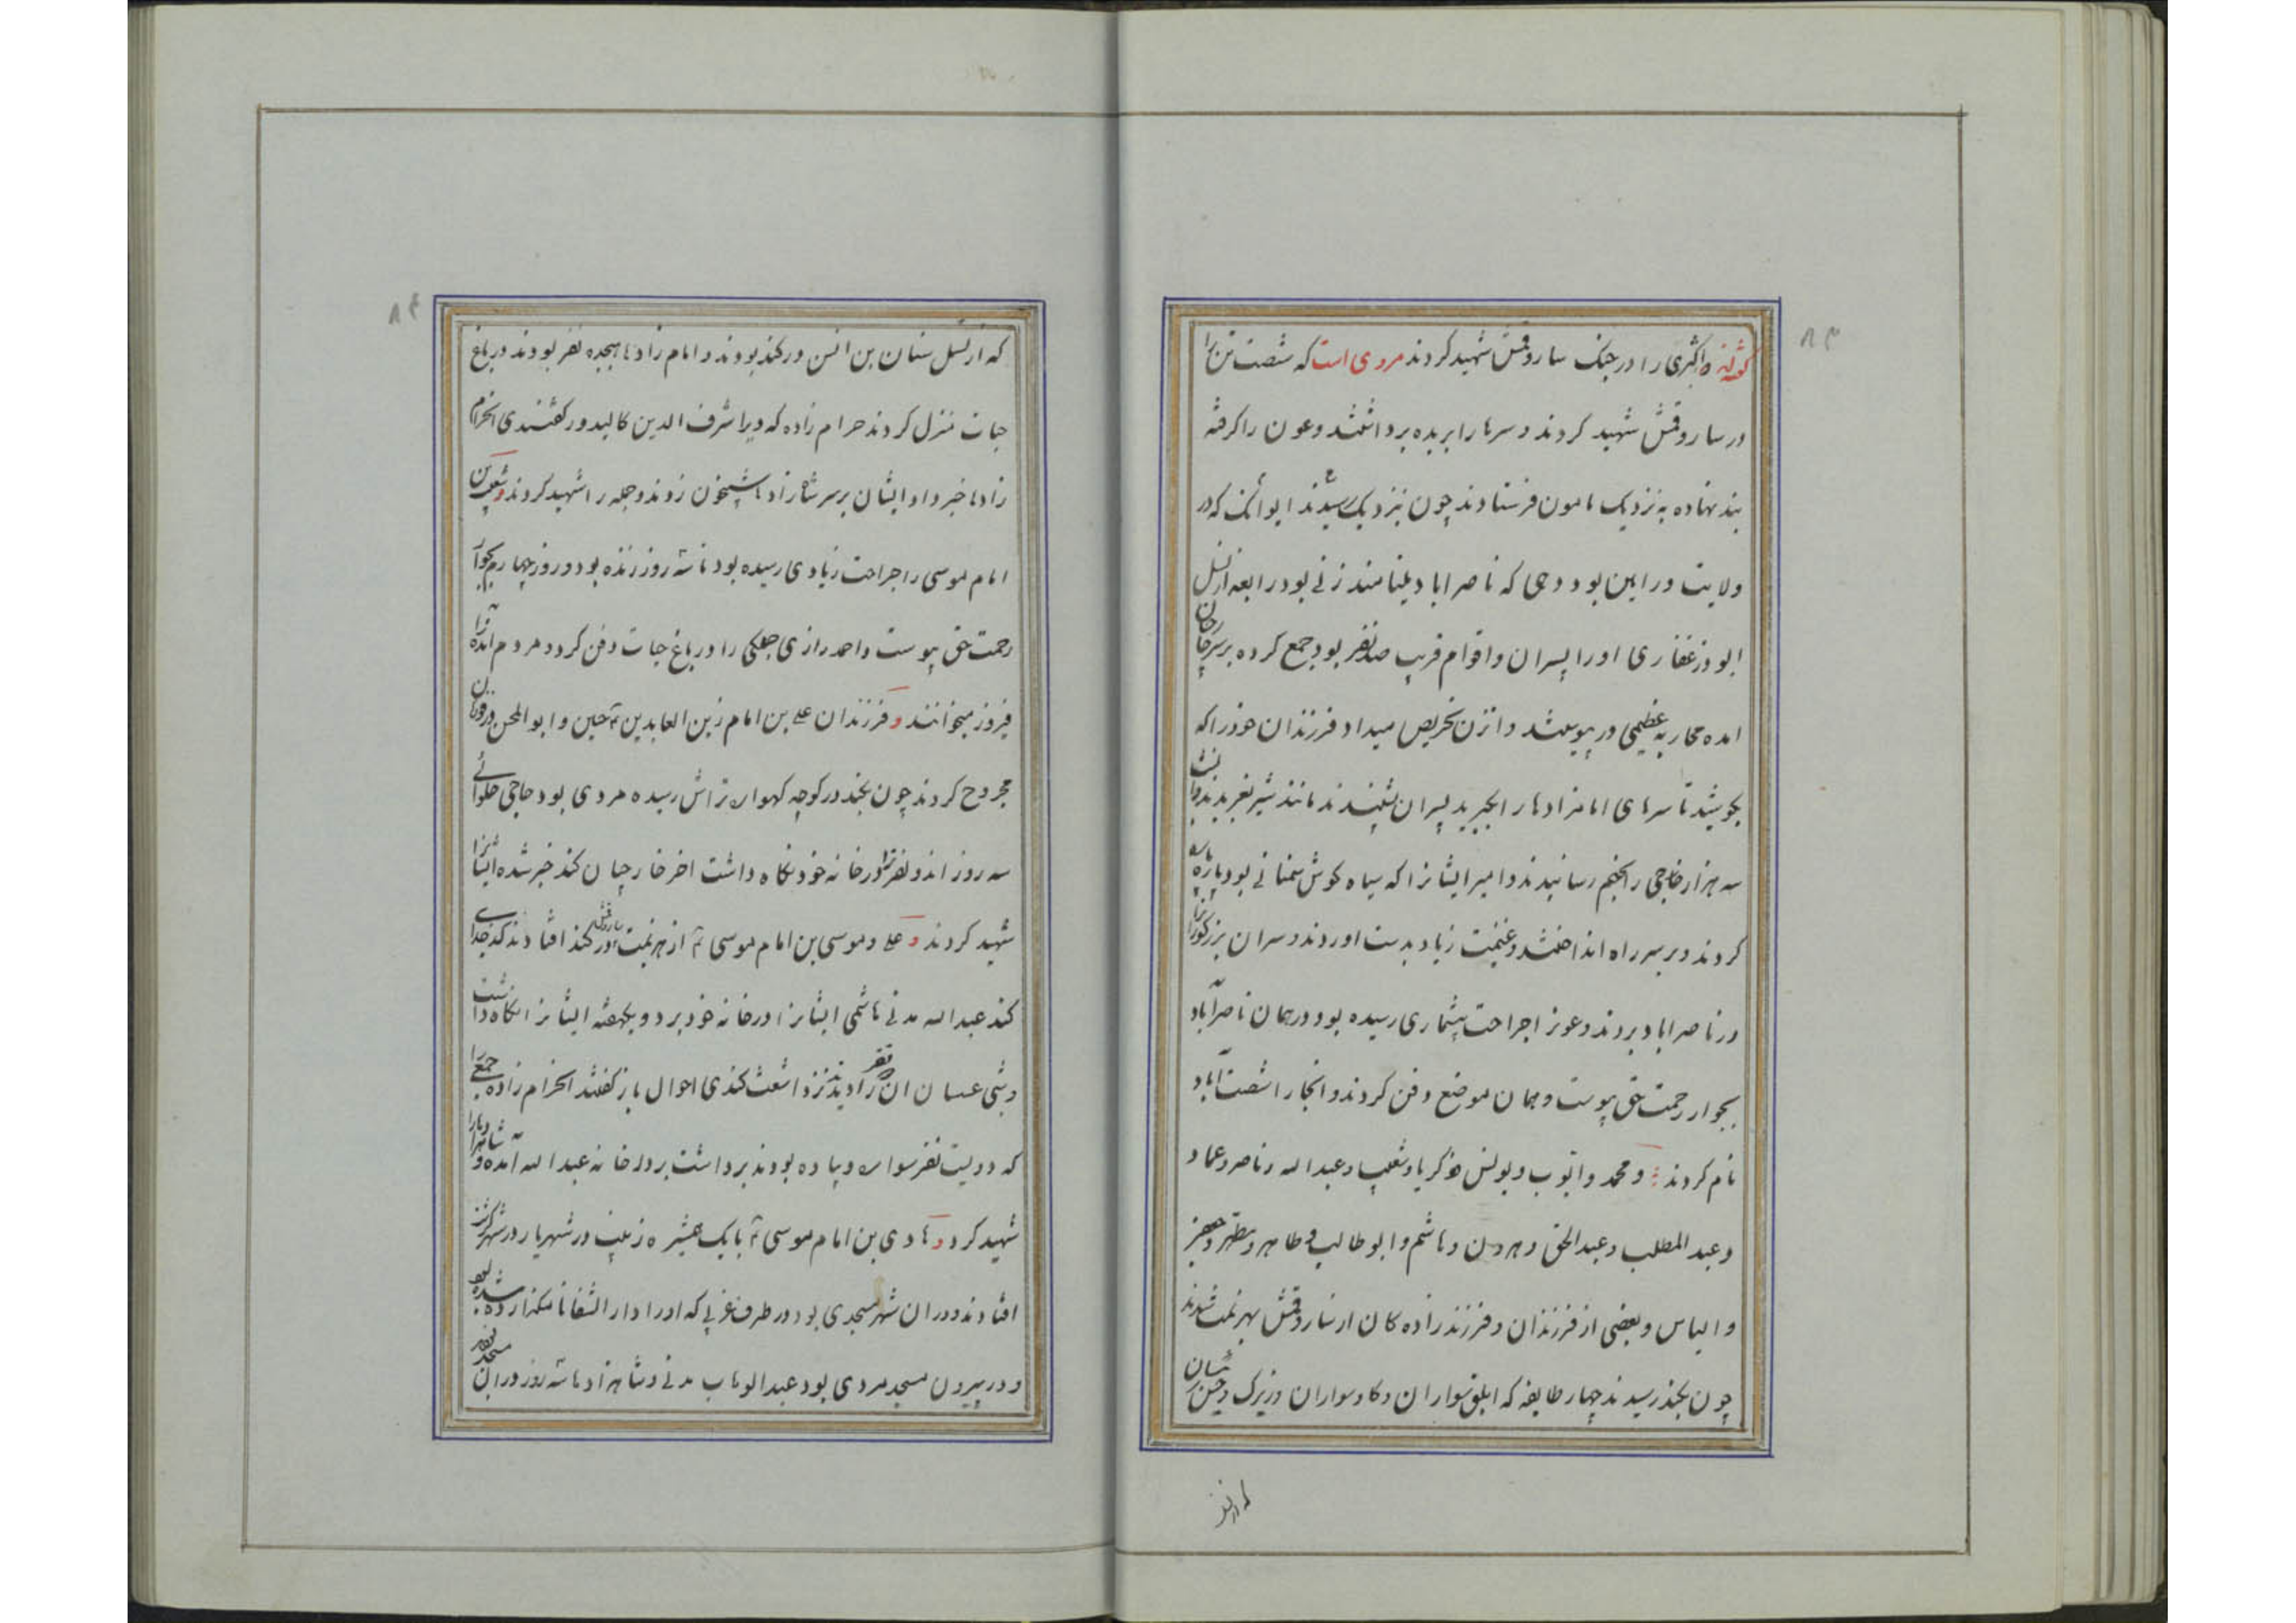 ۸۳
کوشه‌اند و اکثری را در جنک ساروقمش شهید کردند مروی است که شصت تن را
در ساروقمش شهید کردند و سرها را بریده برداشتند و عون را کرفته
بند نهاده به نزدیک مامون فرستادند چون نزدیک رسیدند ایوانک که در
ولایت ورامین بود دهی که ناصراباد مینامند زنی بود رابعه از نسل
ابوذر غفاری او را پسران و اقوام قریب صد نفر بود جمع کرده بر سر خارجیان
امده محاربه عظیمی در پیوستند و انزن تحریص میداد فرزندان خود را که
بکوشید تا سرهای امامزادها را بگیرید پسران شنیدند مانند شیر بغریدند و
سه هزار خارجی را بجهنم رسانیدند و امیر ایشانرا که سیاه کوش سمنانی بود پاره پاره
کردند و بر سر راه انداختند و غنیمت زیاد بدست اوردند و سران بزرکوارانرا
در ناصراباد بردند و عونرا جراحت بیشماری رسیده بود در همان ناصرآباد
بجوار رحمت حق پیوست و بهمان موضع دفن کردند و انجا را شصت آباد
نام کردند و محمد و ایوب و یونس و ذکریا و شعیب و عبدالله و ناصر و عماد و
و عبدالمطلب و عبدالحق و هرون و هاشم و ابوطالب و طاهر و مطهر و جعفر
و الیاس و بعضی از فرزندان و فرزندزاده کان از ساروقمش بهزیمت شدند
چون بکند رسیدند چهار طایفه که ابلق سواران و کاوسواران و زیرک و
که از نسل
۸۴
که از نسل سنان بن انس در کند بودند و امام زادها هیجده نفر بودند در باغ
جات منزل کردند حرام زاده که ویرا شرف الدین کالبدور کفتندی انحرام
زادها خبر داد ایشان بر سر شاه زادها شبیخون زدند و جمله را شهید کردند و شعیب بن
امام موسی را جراحت زیادی رسیده بود تا سه روز زنده بود و روز چهارم بجوار
رحمت حق پیوست و احمد رازی جملکی را در باغ جات دفن کرد و مردم انده را
فیروز میخوانند و فرزندان علی بن امام زین العابدین ع حسین و ابوالمحسن در
مجروح کردند چون بکند در کوچه کهواره تراش رسیده مردی بود حاجی حلوائی
سه روز اندو نفر را در خانه خود نکاه داشت اخر خارجیان کند خبر شده ایشانرا
شهید کردند و علی و موسی بن امام موسی ع از هزیمت ساروقمش در کند افتادند کدخدای
کند عبدالله مدنی هاشمی ایشانرا در خانه خود برد و یکهفته ایشانرا نکاه داشت
و شبی عسسان ان دو نفر را دیدند نزد اشعث کندی احوال باز کفتند انحرام زاده جمعی را
که دویست نفر سواره و پیاده بودند برداشت بر در خانه عبدالله آمده و شاهزادها را
شهید کرد و هادی بن امام موسی ع با یک همشیره زینب در شهریار در شهر
افتادند و در ان شهر مسجدی بود در طرف غربی که او را دار الشفا
و در بیرون مسجد مردی بود عبدالوهاب مدنی و شاهزادها سه روز در ان مسجد